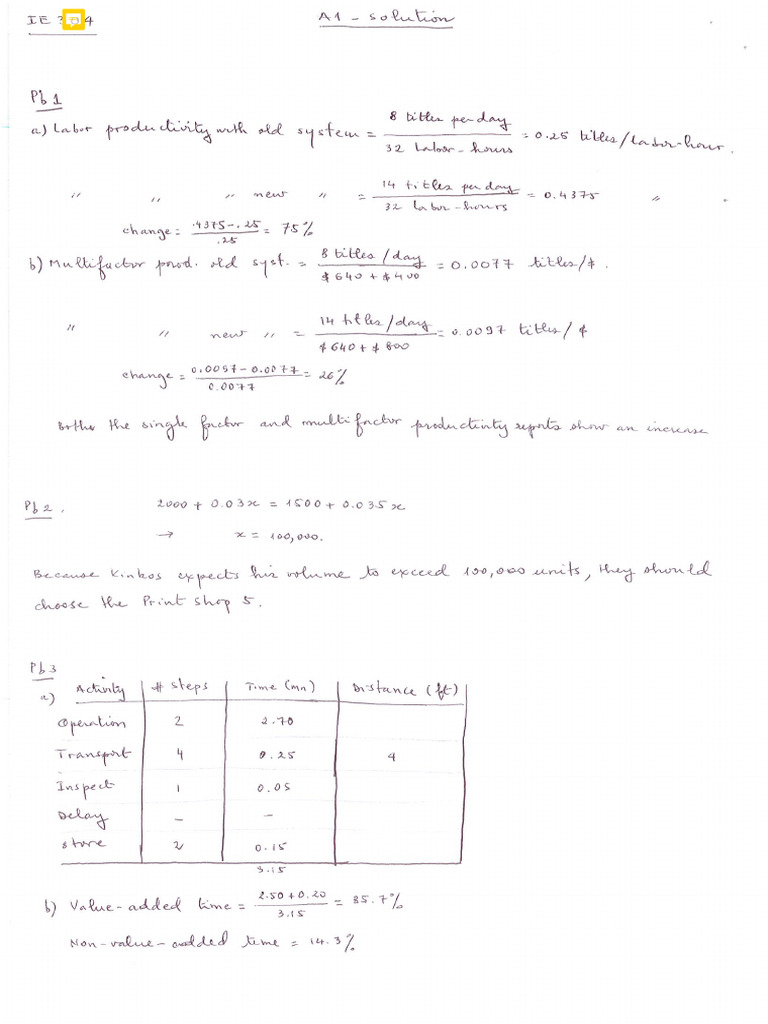 IE 4 A1 - Solution
Pb 1
a) Labor productivity with old system = 8 titles per day / 32 Labor-hours = 0.25 titles/Labor-hour.
" " " new " = 14 titles per day / 32 Labor-hours = 0.4375 "
change = .4375-.25 / .25 = 75%
b) Multifactor prod. old syst. = 8 titles/day / $640 + $400 = 0.0077 titles/$.
" " new " = 14 titles/day / $640 + $800 = 0.0097 titles/$
change = 0.0097-0.0077 / 0.0077 = 26%
the single factor and multifactor productivity reports show an increase
Pb 2. 2000 + 0.03x = 1500 + 0.035x
→ x = 100,000.
Because Kinkos expects his volume to exceed 100,000 units, they should
choose the Print Shop 5.
Pb 3
a) Activity # Steps Time (mn) Distance (ft)
Operation 2 2.70
Transport 4 0.25 4
Inspect 1 0.05
Delay - -
Store 2 0.15
3.15
b) Value-added time = 2.50+0.20 / 3.15 = 85.7%
Non-value-added time = 14.3%